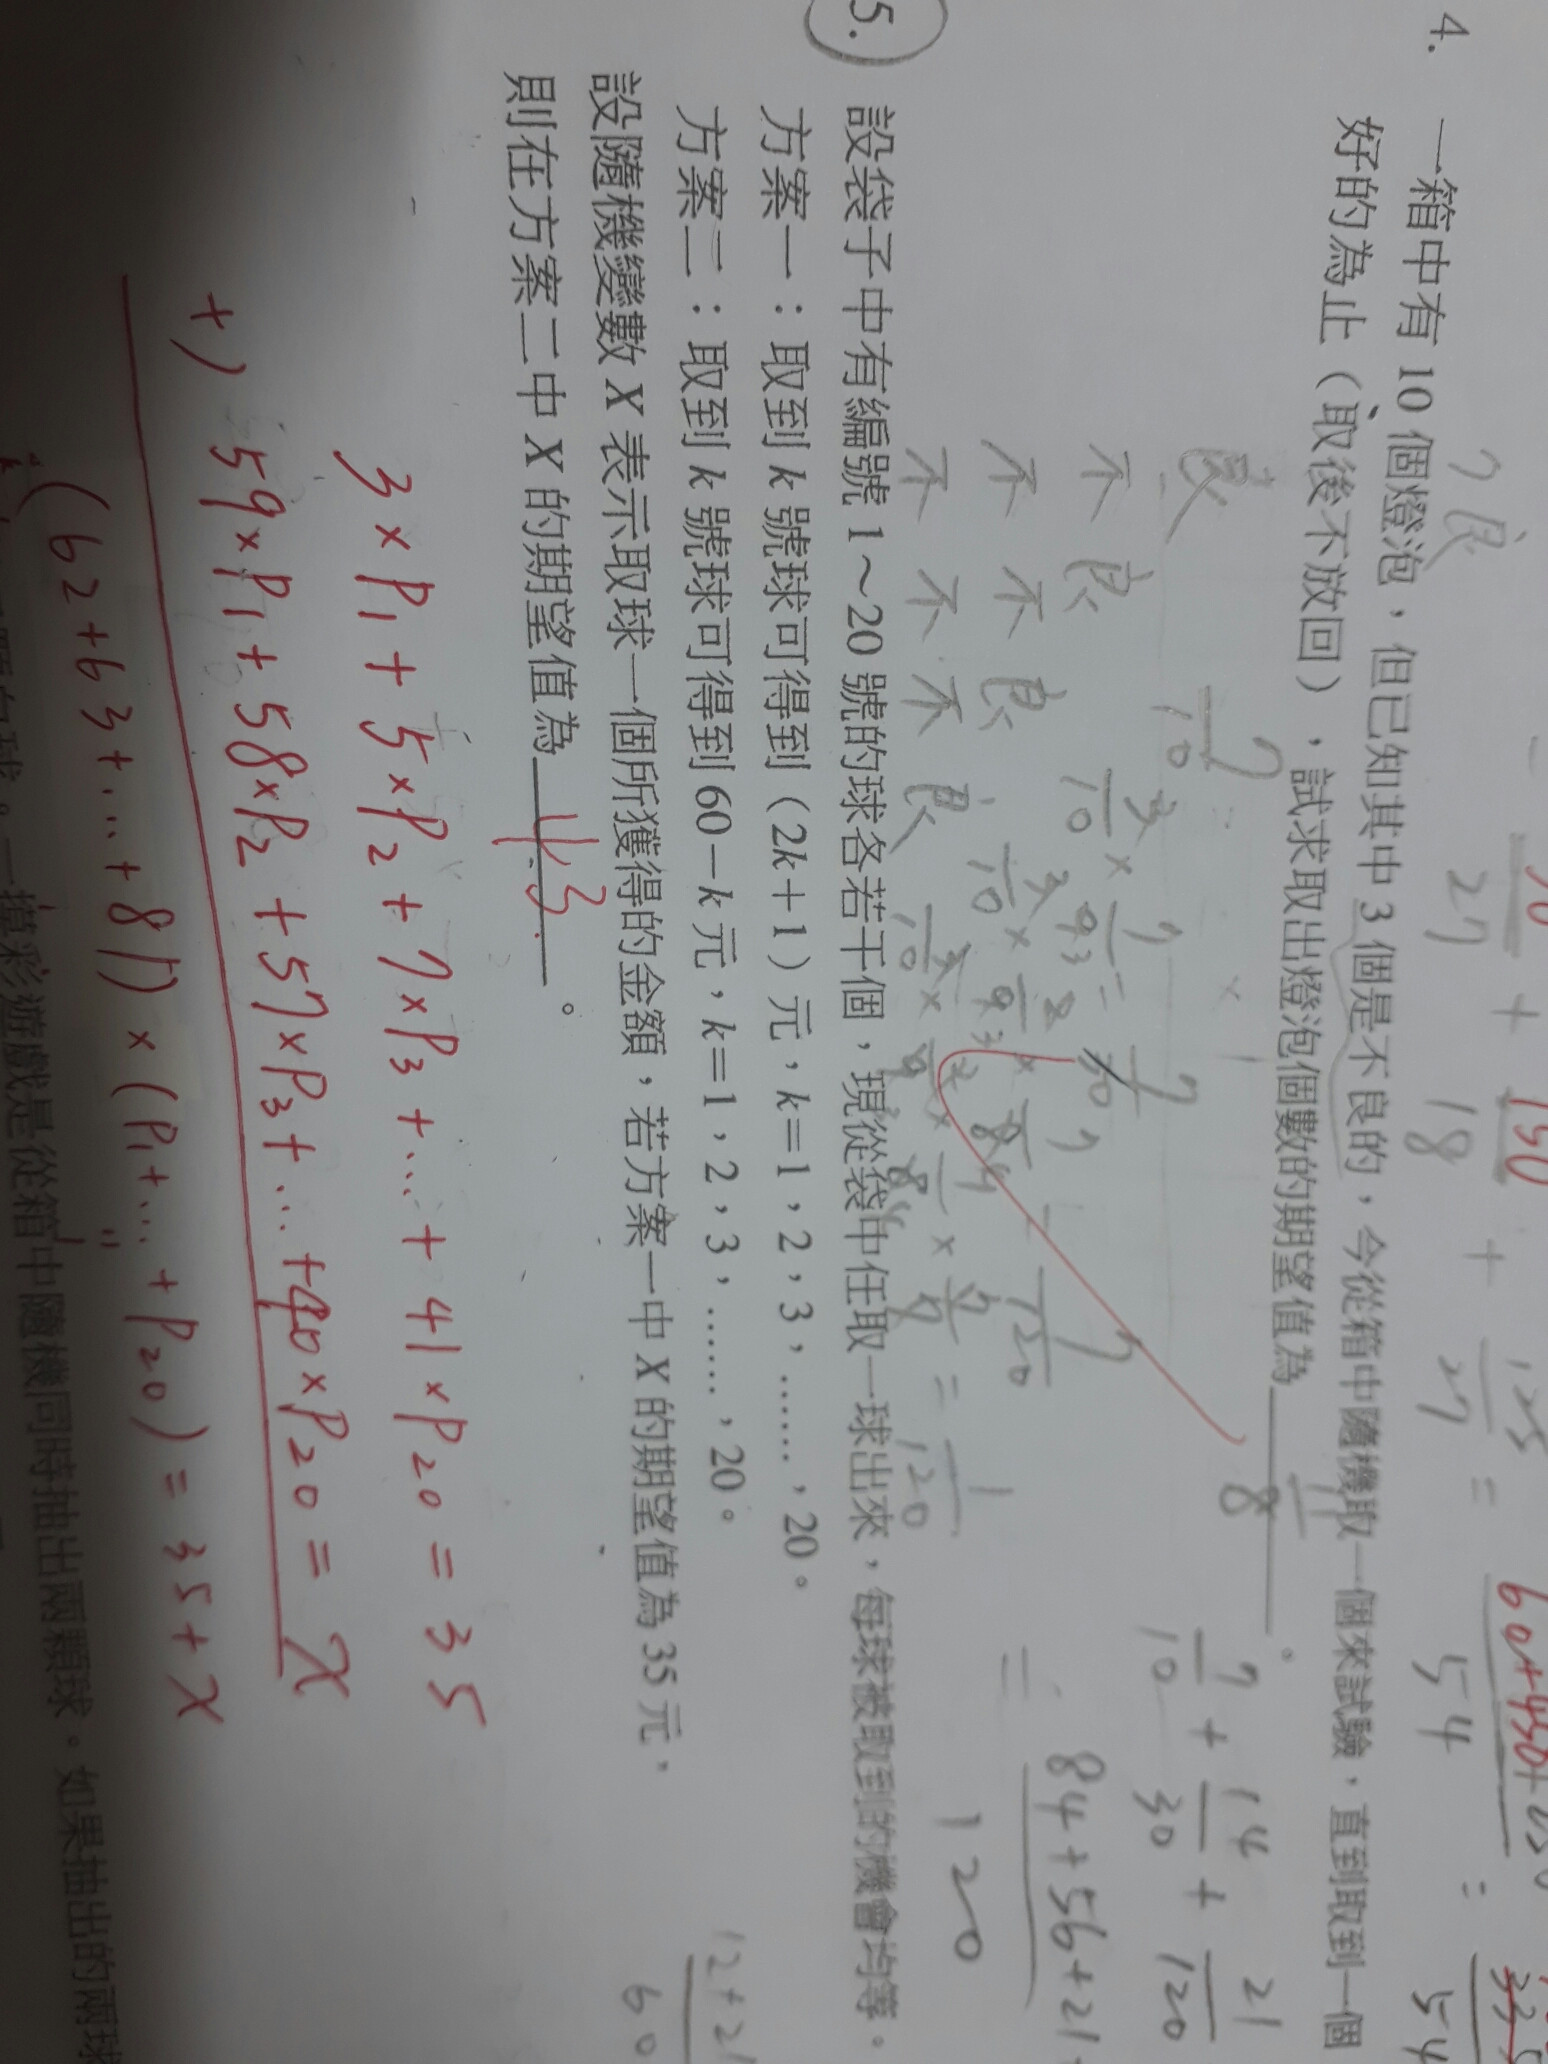 4. 一箱中有 10 個燈泡，但已知其中 3 個是不良的，今從箱中隨機取一個來試驗，直到取到一個
好的為止（取後不放回），試求取出燈泡個數的期望值為 11/8 。
良 7/10
不 良 3/10 × 7/9 = 7/30
不 不 良
不 不 不 良
7/10 + 14/30 + 21/120
5. 設袋子中有編號 1～20 號的球各若干個，現從袋中任取一球出來，每球被取到的機會均等。
方案一：取到 k 號球可得到（2k＋1）元，k＝1，2，3，……，20。
方案二：取到 k 號球可得到 60－k 元，k＝1，2，3，……，20。
設隨機變數 X 表示取球一個所獲得的金額，若方案一中 X 的期望值為 35 元，
則在方案二中 X 的期望值為 43 。
3×P₁ + 5×P₂ + 7×P₃ + … + 41×P₂₀ = 35
+) 59×P₁ + 58×P₂ + 57×P₃ + … + 40×P₂₀ = x
(62+63+…+81) × (P₁+… + P₂₀) = 35+x
一摸彩遊戲是從箱中隨機同時抽出兩顆球。如果抽出的兩球